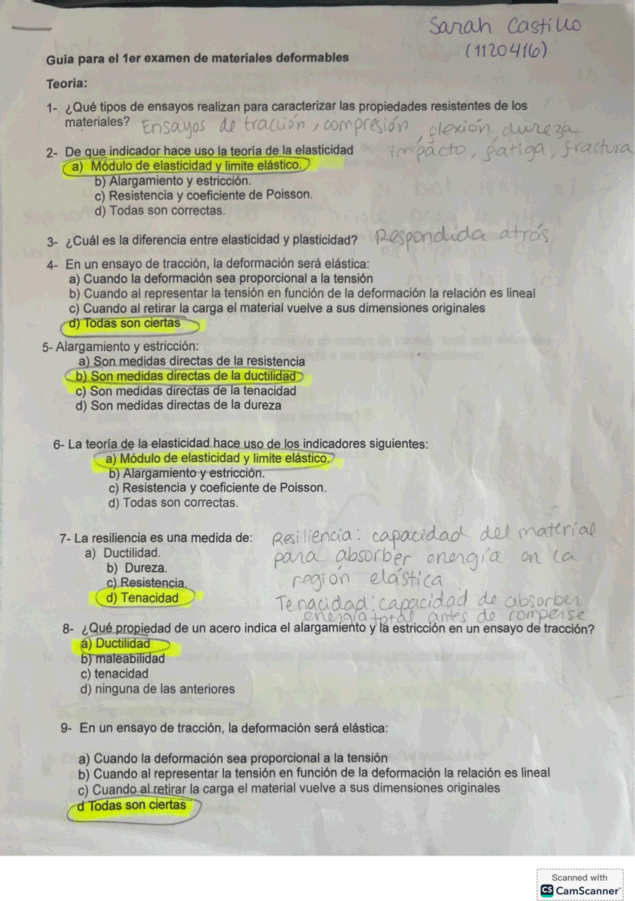 Sarah Castillo
(1120416)
Guia para el 1er examen de materiales deformables
Teoria:
1- ¿Qué tipos de ensayos realizan para caracterizar las propiedades resistentes de los
materiales? Ensayos de tracción, compresión, flexión, dureza
impacto, fatiga, fractura
2- De que indicador hace uso la teoría de la elasticidad
a) Módulo de elasticidad y limite elástico.
b) Alargamiento y estricción.
c) Resistencia y coeficiente de Poisson.
d) Todas son correctas.
3- ¿Cuál es la diferencia entre elasticidad y plasticidad? Respondida atrás
4- En un ensayo de tracción, la deformación será elástica:
a) Cuando la deformación sea proporcional a la tensión
b) Cuando al representar la tensión en función de la deformación la relación es lineal
c) Cuando al retirar la carga el material vuelve a sus dimensiones originales
d) Todas son ciertas
5- Alargamiento y estricción:
a) Son medidas directas de la resistencia
b) Son medidas directas de la ductilidad
c) Son medidas directas de la tenacidad
d) Son medidas directas de la dureza
6- La teoría de la elasticidad hace uso de los indicadores siguientes:
a) Módulo de elasticidad y limite elástico.
b) Alargamiento y estricción.
c) Resistencia y coeficiente de Poisson.
d) Todas son correctas.
7- La resiliencia es una medida de:
a) Ductilidad.
b) Dureza.
c) Resistencia.
d) Tenacidad
Resiliencia: capacidad del material
para absorber energía en la
región elástica
Tenacidad: capacidad de absorber
energía total antes de romperse
8- ¿Qué propiedad de un acero indica el alargamiento y la estricción en un ensayo de tracción?
a) Ductilidad
b) maleabilidad
c) tenacidad
d) ninguna de las anteriores
9- En un ensayo de tracción, la deformación será elástica:
a) Cuando la deformación sea proporcional a la tensión
b) Cuando al representar la tensión en función de la deformación la relación es lineal
c) Cuando al retirar la carga el material vuelve a sus dimensiones originales
d Todas son ciertas
Scanned with
CS CamScanner